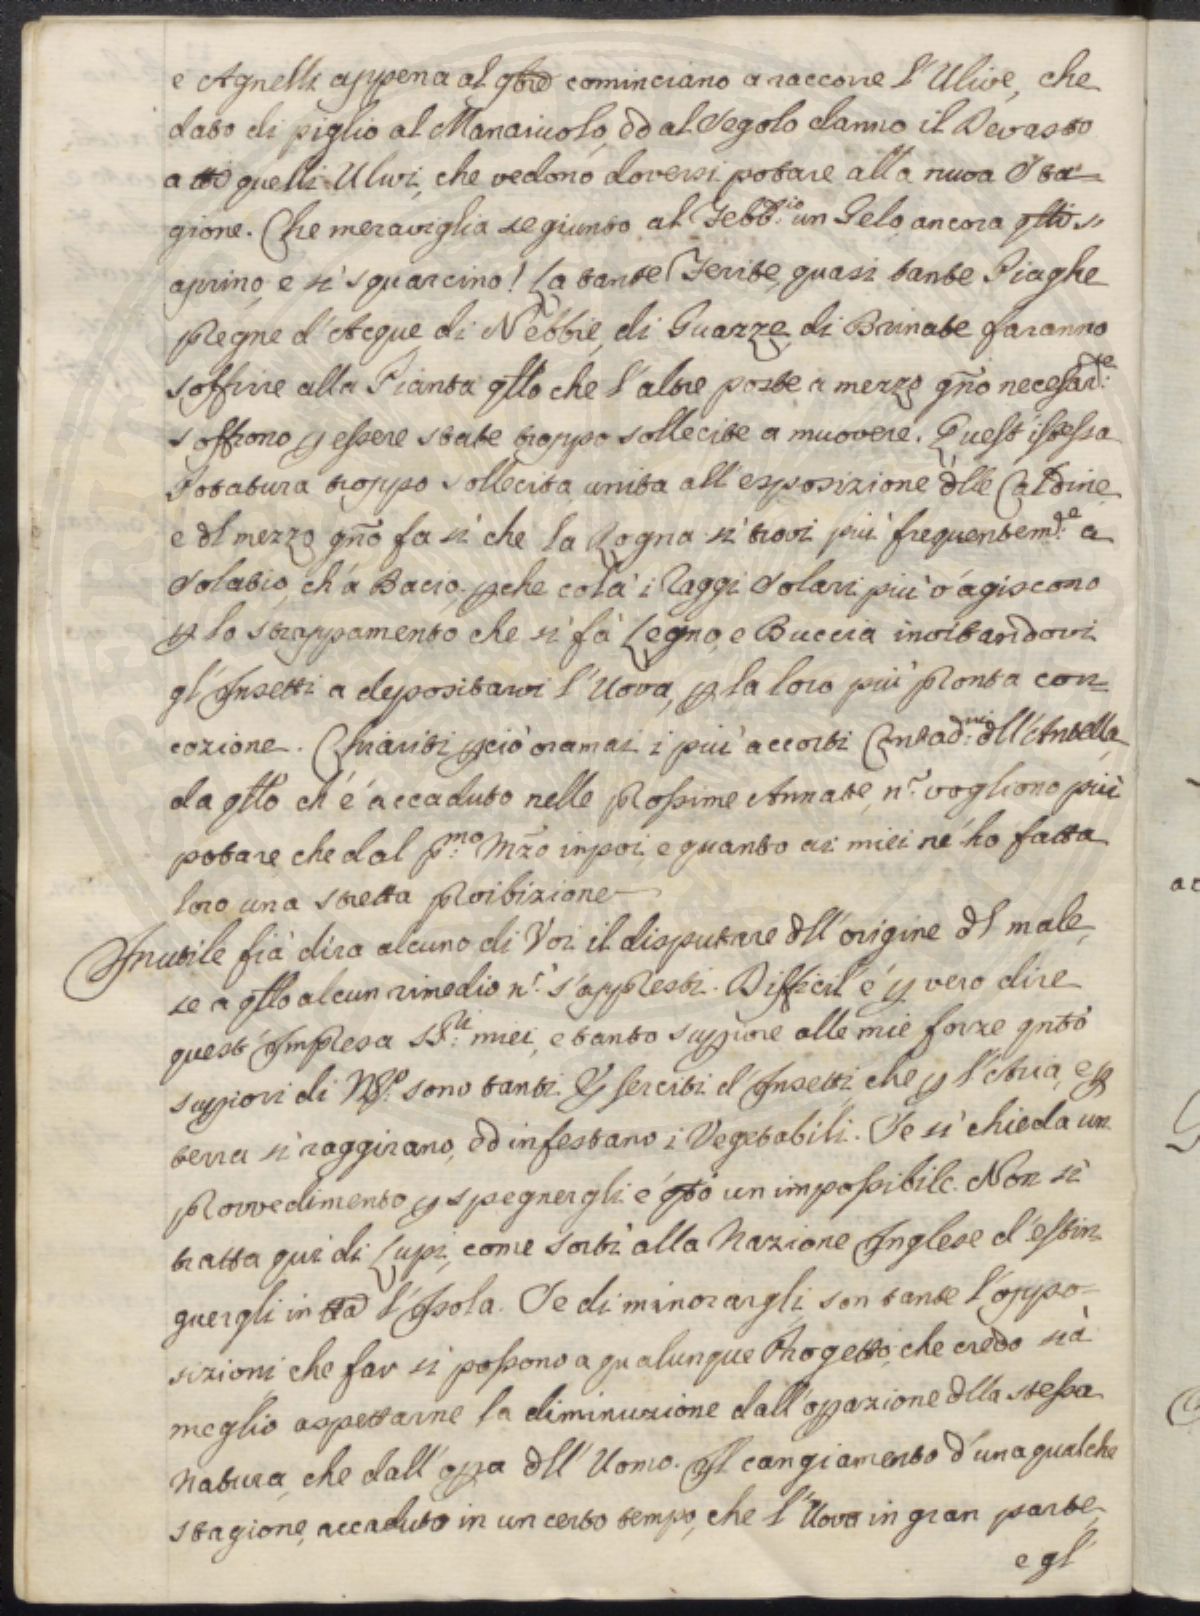 e Agnelli appena al qbre cominciano a raccorre l'Ulive, che
dato di piglio al Manaiuolo, ed al Segolo danno il Devasto
a tto quelli Ulivi, che vedono doversi potare alla nuova Sta=
gione. Che meraviglia se giunto al Febb:io un Gelo ancora qlli s'
aprino, e si squarcino! La tante Ferite, quasi tante Piaghe
pregne d'Acque di Nebbie, di Guazze, di Brinate faranno
soffrire alla Pianta qllo che l'altre poste a mezzo gño necessar:te
soffrono p essere state troppo sollecite a muovere. Quest'istessa
Potatura troppo sollecita unita all'esposizione dlle Caldine,
e dl mezzo gño fa sì che la Rogna si trovi più frequentem:te a
Solatio, ch'a Bacio, pche colà i Raggi Solari più v'agiscono
p lo strappamento che si fà Legno, e Buccia invitandovi
gl'Insetti a depositarvi l'Uova, p la loro più pronta con=
cozione. Chiariti pciò oramai i più accorti Contad:ni dll'Antella
da qllo ch'è accaduto nelle prossime Annate, n: vogliono più
potare che dal p:mo Mzo in poi e quanto ai miei nè ho fatta
loro una stretta proibizione
Inutile fia dira alcuno di Voi il disputare dll'origine dl male,
se a qllo alcun rimedio n: s'appresti. Difficil'è p vero dire
quest'Impresa SS:ri miei, e tanto suppiore alle mie forze qnto
suppiori di N:o sono tanti Eserciti d'Insetti, che p l'Aria, e p
terra si raggirano, ed infestano i Vegetabili. Se si chieda un
provvedimento p spegnergli è qsto un impossibile. Non si
tratta qui di Lupi, come sortì alla Nazione Inglese d'estin
guergli in tta l'Isola. Se di minorargli, son tante l'oppo=
sizioni che far si possono a qualunque Progetto, che credo sia
meglio aspettarne la diminuzione dall'opazione dlla stessa
Natura, che dall'opa dll'Uomo. Il cangiamento d'una qualche
stagione, accaduto in un certo tempo, che l'Uova in gran parte,
e gl'